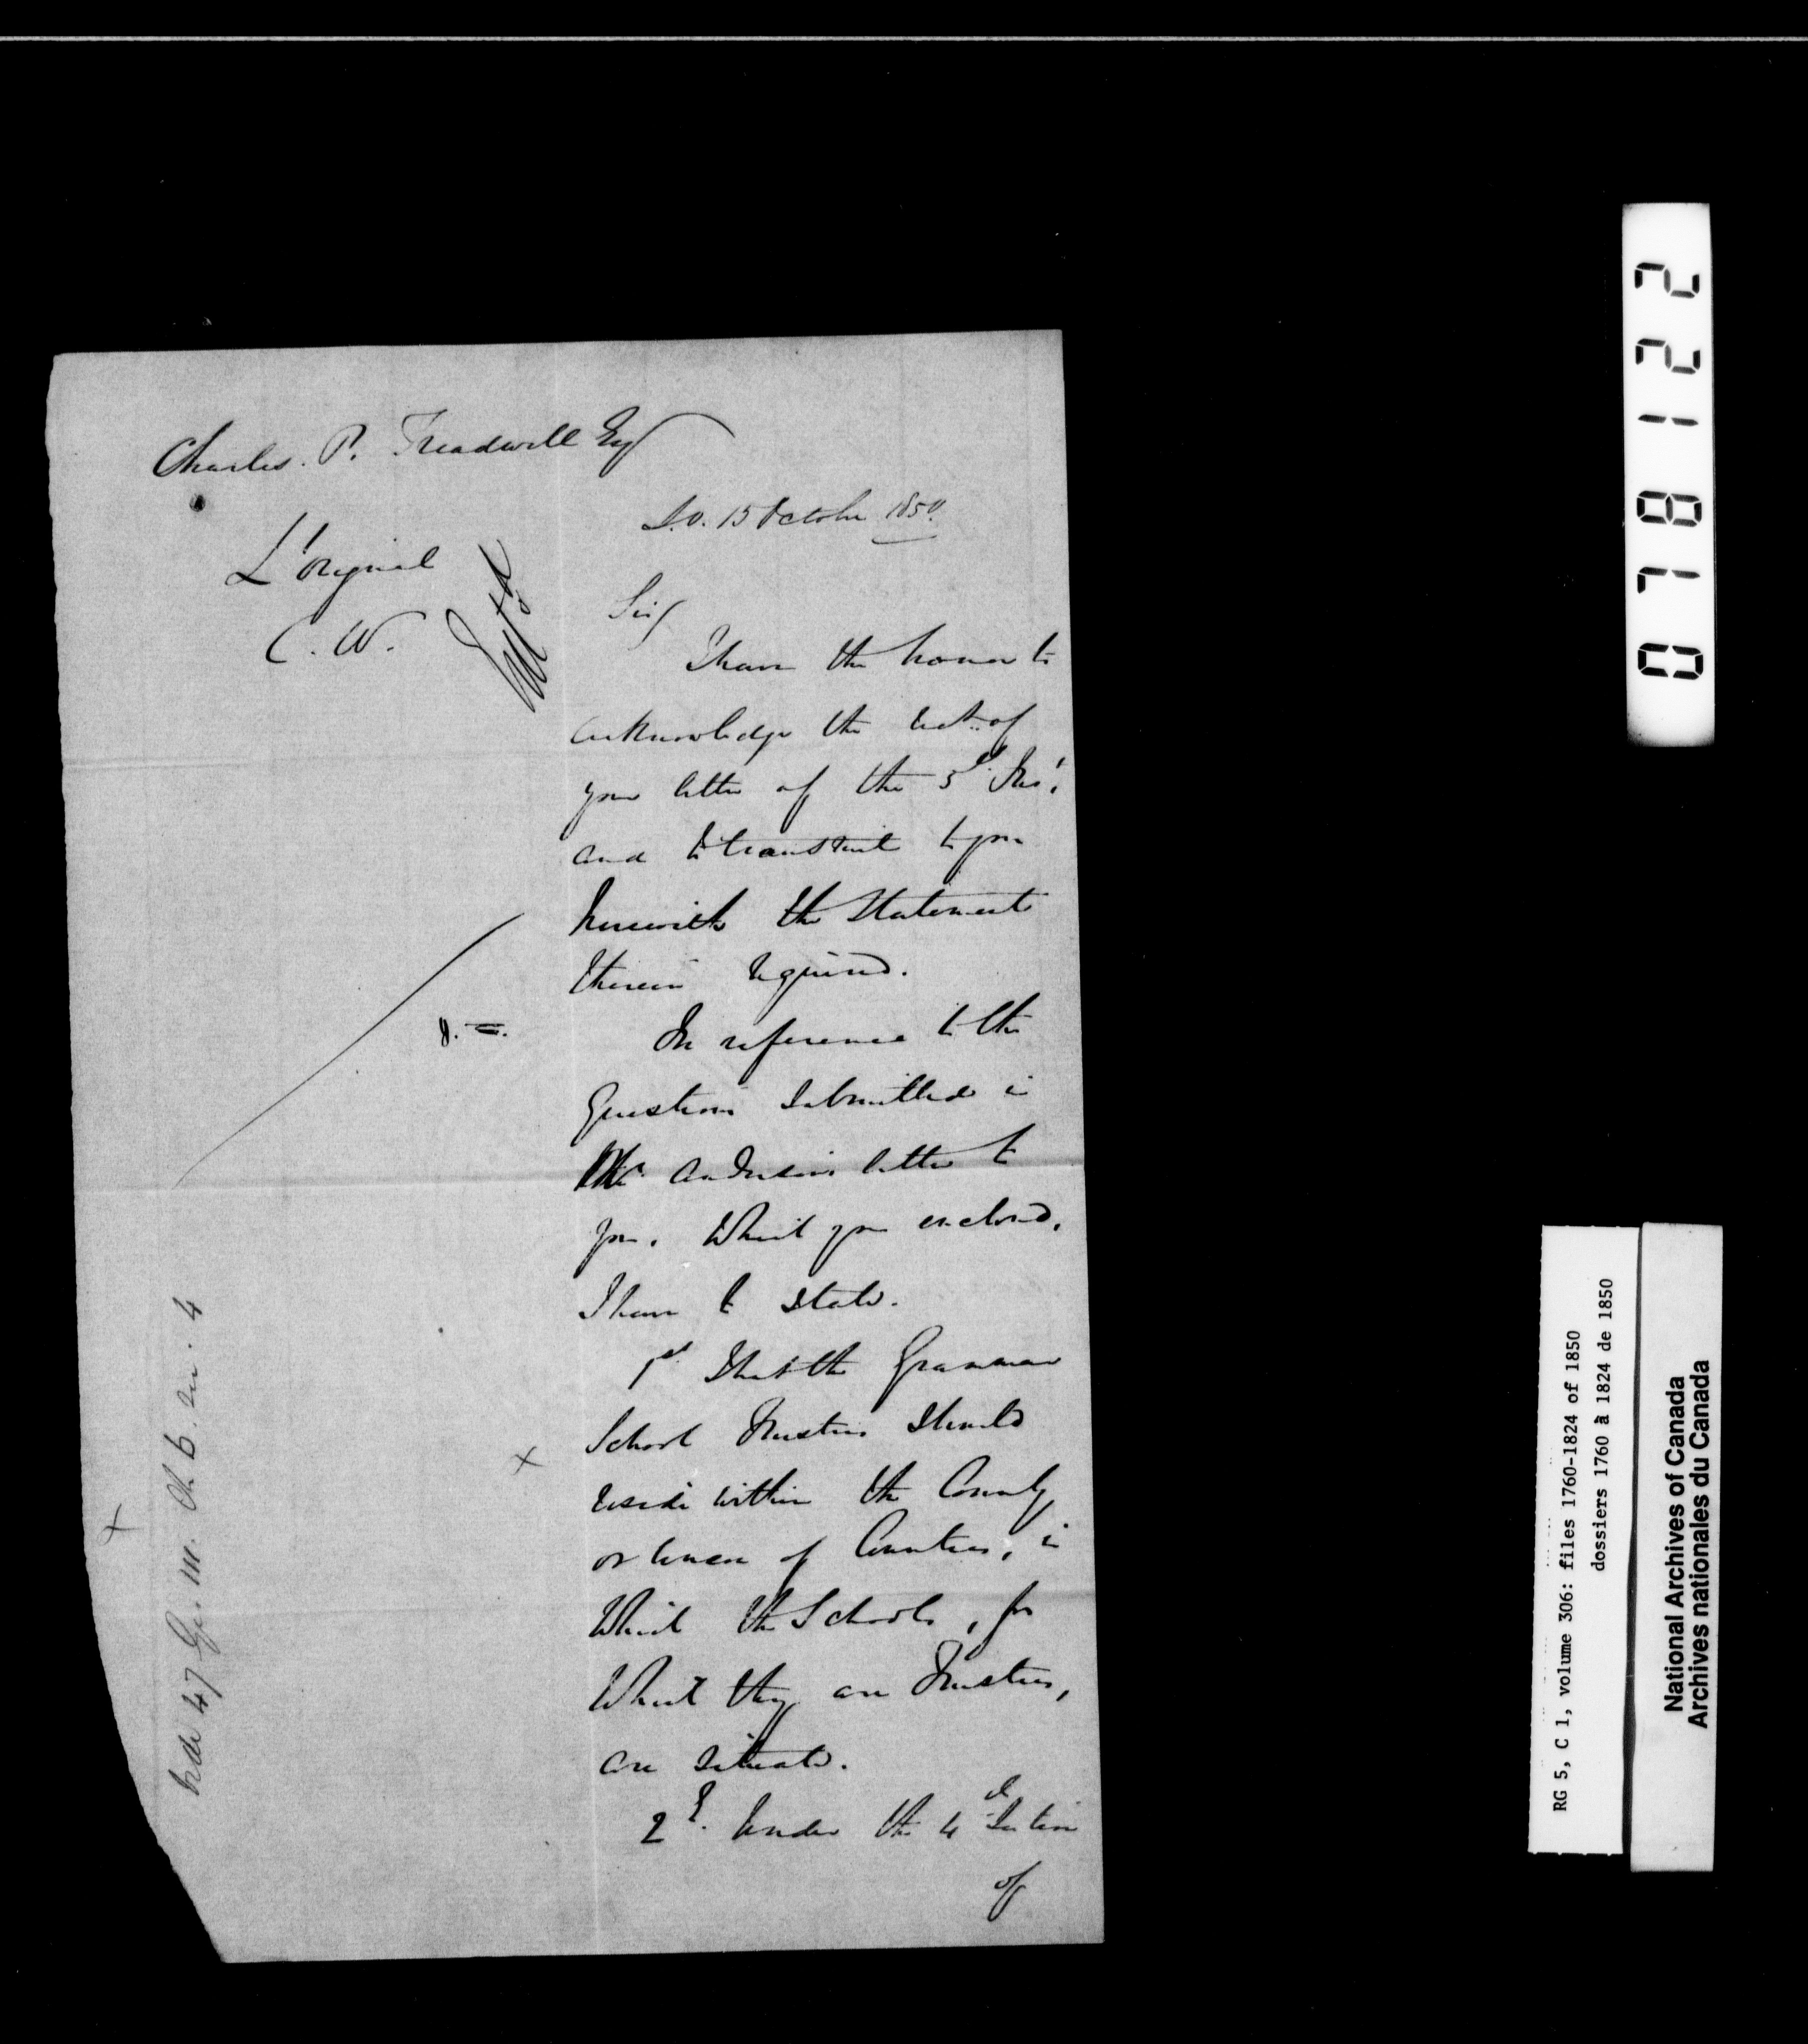 Charles. P. Treadwell Esq
L'orignal
C. W.
S.O. 15 October 1850.
Sir/
I have the honor to
acknowledge the rect. of
your letter of the 5th Inst.
and to transmit to you
herewith the Statement
therein required.
In reference to the
Question submitted in
Mr. Anderson's letter to
you. Which you enclosed,
I have to state.
1st That the Grammar
School Trustees should
x
reside within the County
or Union of Counties, in
Which the Schools, for
Which they are Trustees,
are situated.
2d. Under the 4th Section
of
x
vide 47 Geo. III. Ch. 6. sec. 4
078122
RG 5, C 1, volume 306: files 1760-1824 of 1850
dossiers 1760 à 1824 de 1850
National Archives of Canada
Archives nationales du Canada